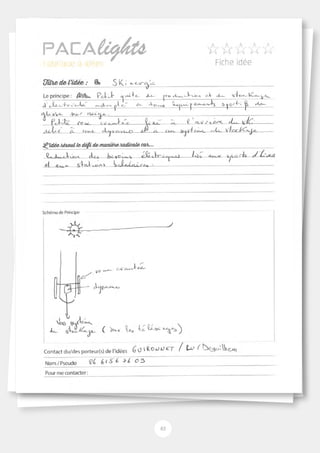 PACAlights
Fiche idée
Titre de l'idée : SK: energie
Le principe : Petit système de production et de stockage
d'électricité adapté à tous équipements sportifs de
glisse sur neige
Petite roue crantée fixé à l'arrière du ski
relié à une dynamo et a un système de stockage
L'idée résoud le défi de manière radicale car...
Réduction des besoins électriques lié aux sports d'hiver
et aux stations balnéaires.
Schéma de Principe:
roue crantée
dynamo
Vers système
de stockage (sur les télésièges)
Contact du/des porteur(s) de l'idée: GUIBONNET /
Nom / Pseudo
Pour me contacter :
43